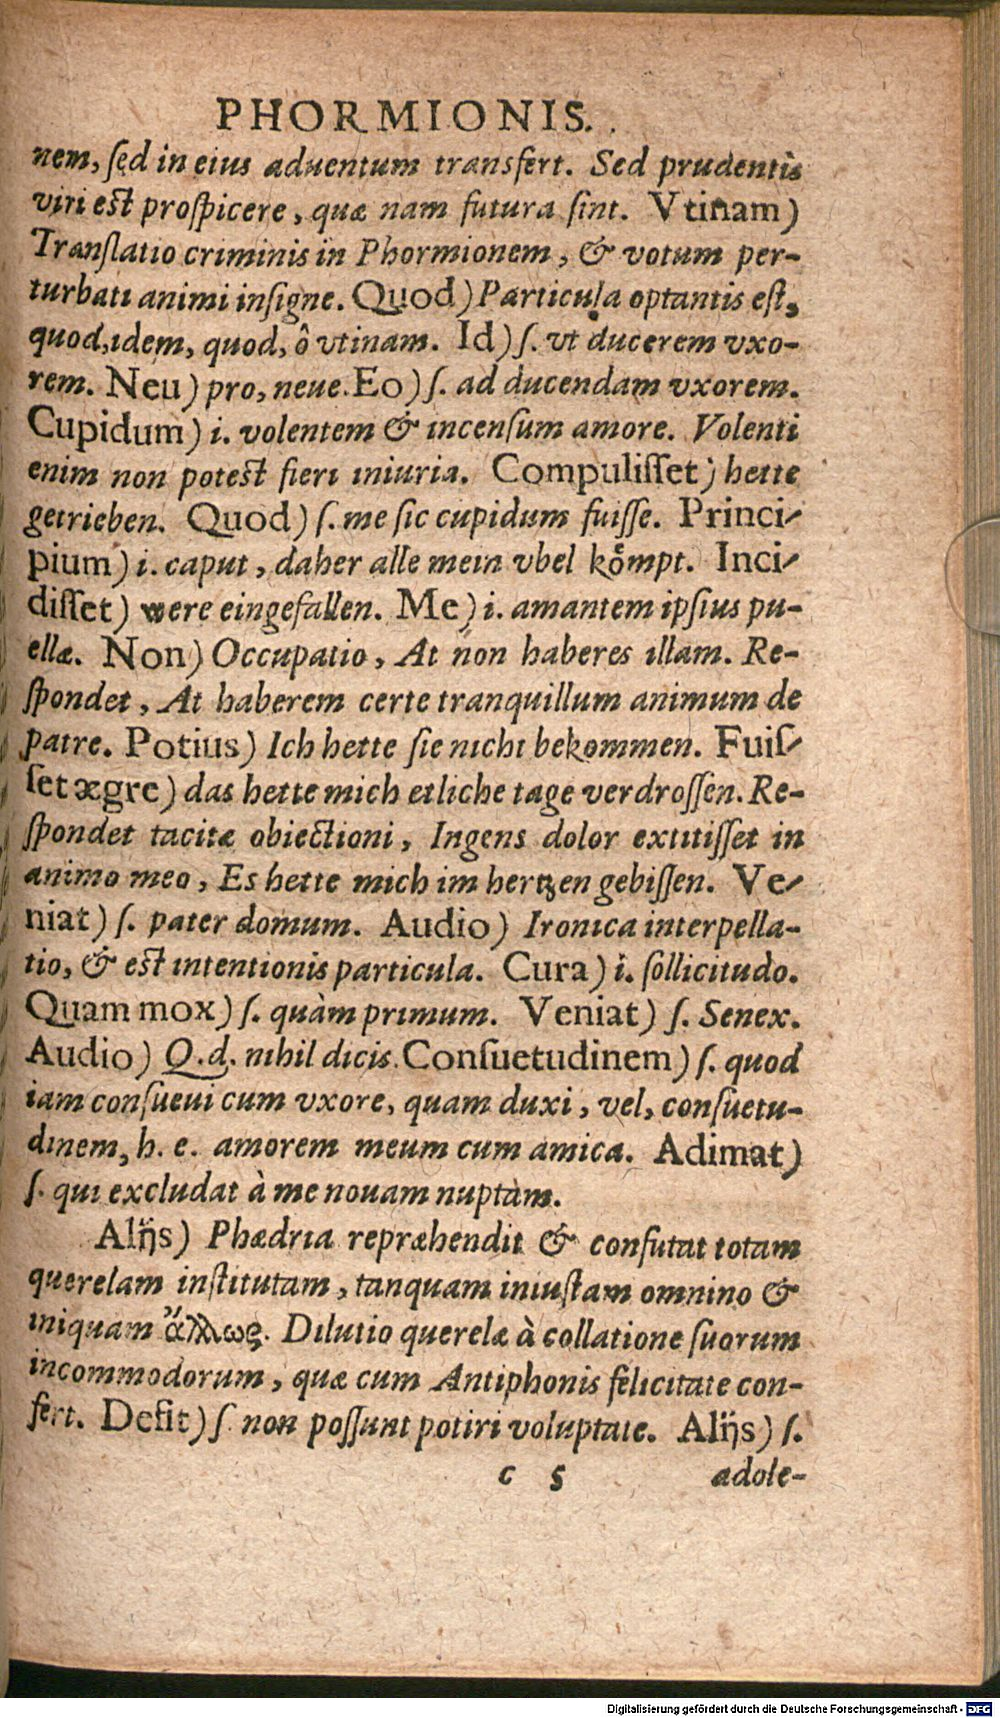 PHORMIONIS.
nem, sed in eius aduentum transfert. Sed prudentis
viri est prospicere, quæ nam futura sint. Vtinam)
Translatio criminis in Phormionem, & votum per-
turbati animi insigne. Quod) Particula optantis est,
quod, idem, quod, ô vtinam. Id) s. vt ducerem vxo-
rem. Neu) pro, neue. Eo) s. ad ducendam vxorem.
Cupidum) i. volentem & incensum amore. Volenti
enim non potest fieri iniuria. Compulisset) hette
getrieben. Quod) s. me sic cupidum fuisse. Princi-
pium) i. caput, daher alle mein vbel kömpt. Inci-
disset) were eingefallen. Me) i. amantem ipsius pu-
ellæ. Non) Occupatio, At non haberes illam. Re-
spondet, At haberem certe tranquillum animum de
patre. Potius) Ich hette sie nicht bekommen. Fuis-
set ægre) das hette mich etliche tage verdrossen. Re-
spondet tacitæ obiectioni, Ingens dolor extitisset in
animo meo, Es hette mich im hertzen gebissen. Ve-
niat) s. pater domum. Audio) Ironica interpella-
tio, & est intentionis particula. Cura) i. sollicitudo.
Quam mox) s. quàm primum. Veniat) s. Senex.
Audio) Q.d. nihil dicis. Consuetudinem) s. quod
iam consueui cum vxore, quam duxi, vel, consuetu-
dinem, h. e. amorem meum cum amica. Adimat)
s. qui excludat à me nouam nuptam.
Alijs) Phædria repræhendit & confutat totam
querelam institutam, tanquam iniustam omnino &
iniquam ἄλλως. Dilutio querelæ à collatione suorum
incommodorum, quæ cum Antiphonis felicitate con-
fert. Defit) s. non possunt potiri voluptate. Alijs) s.
c 5 adole-
Digitalisierung gefördert durch die Deutsche Forschungsgemeinschaft - DFG